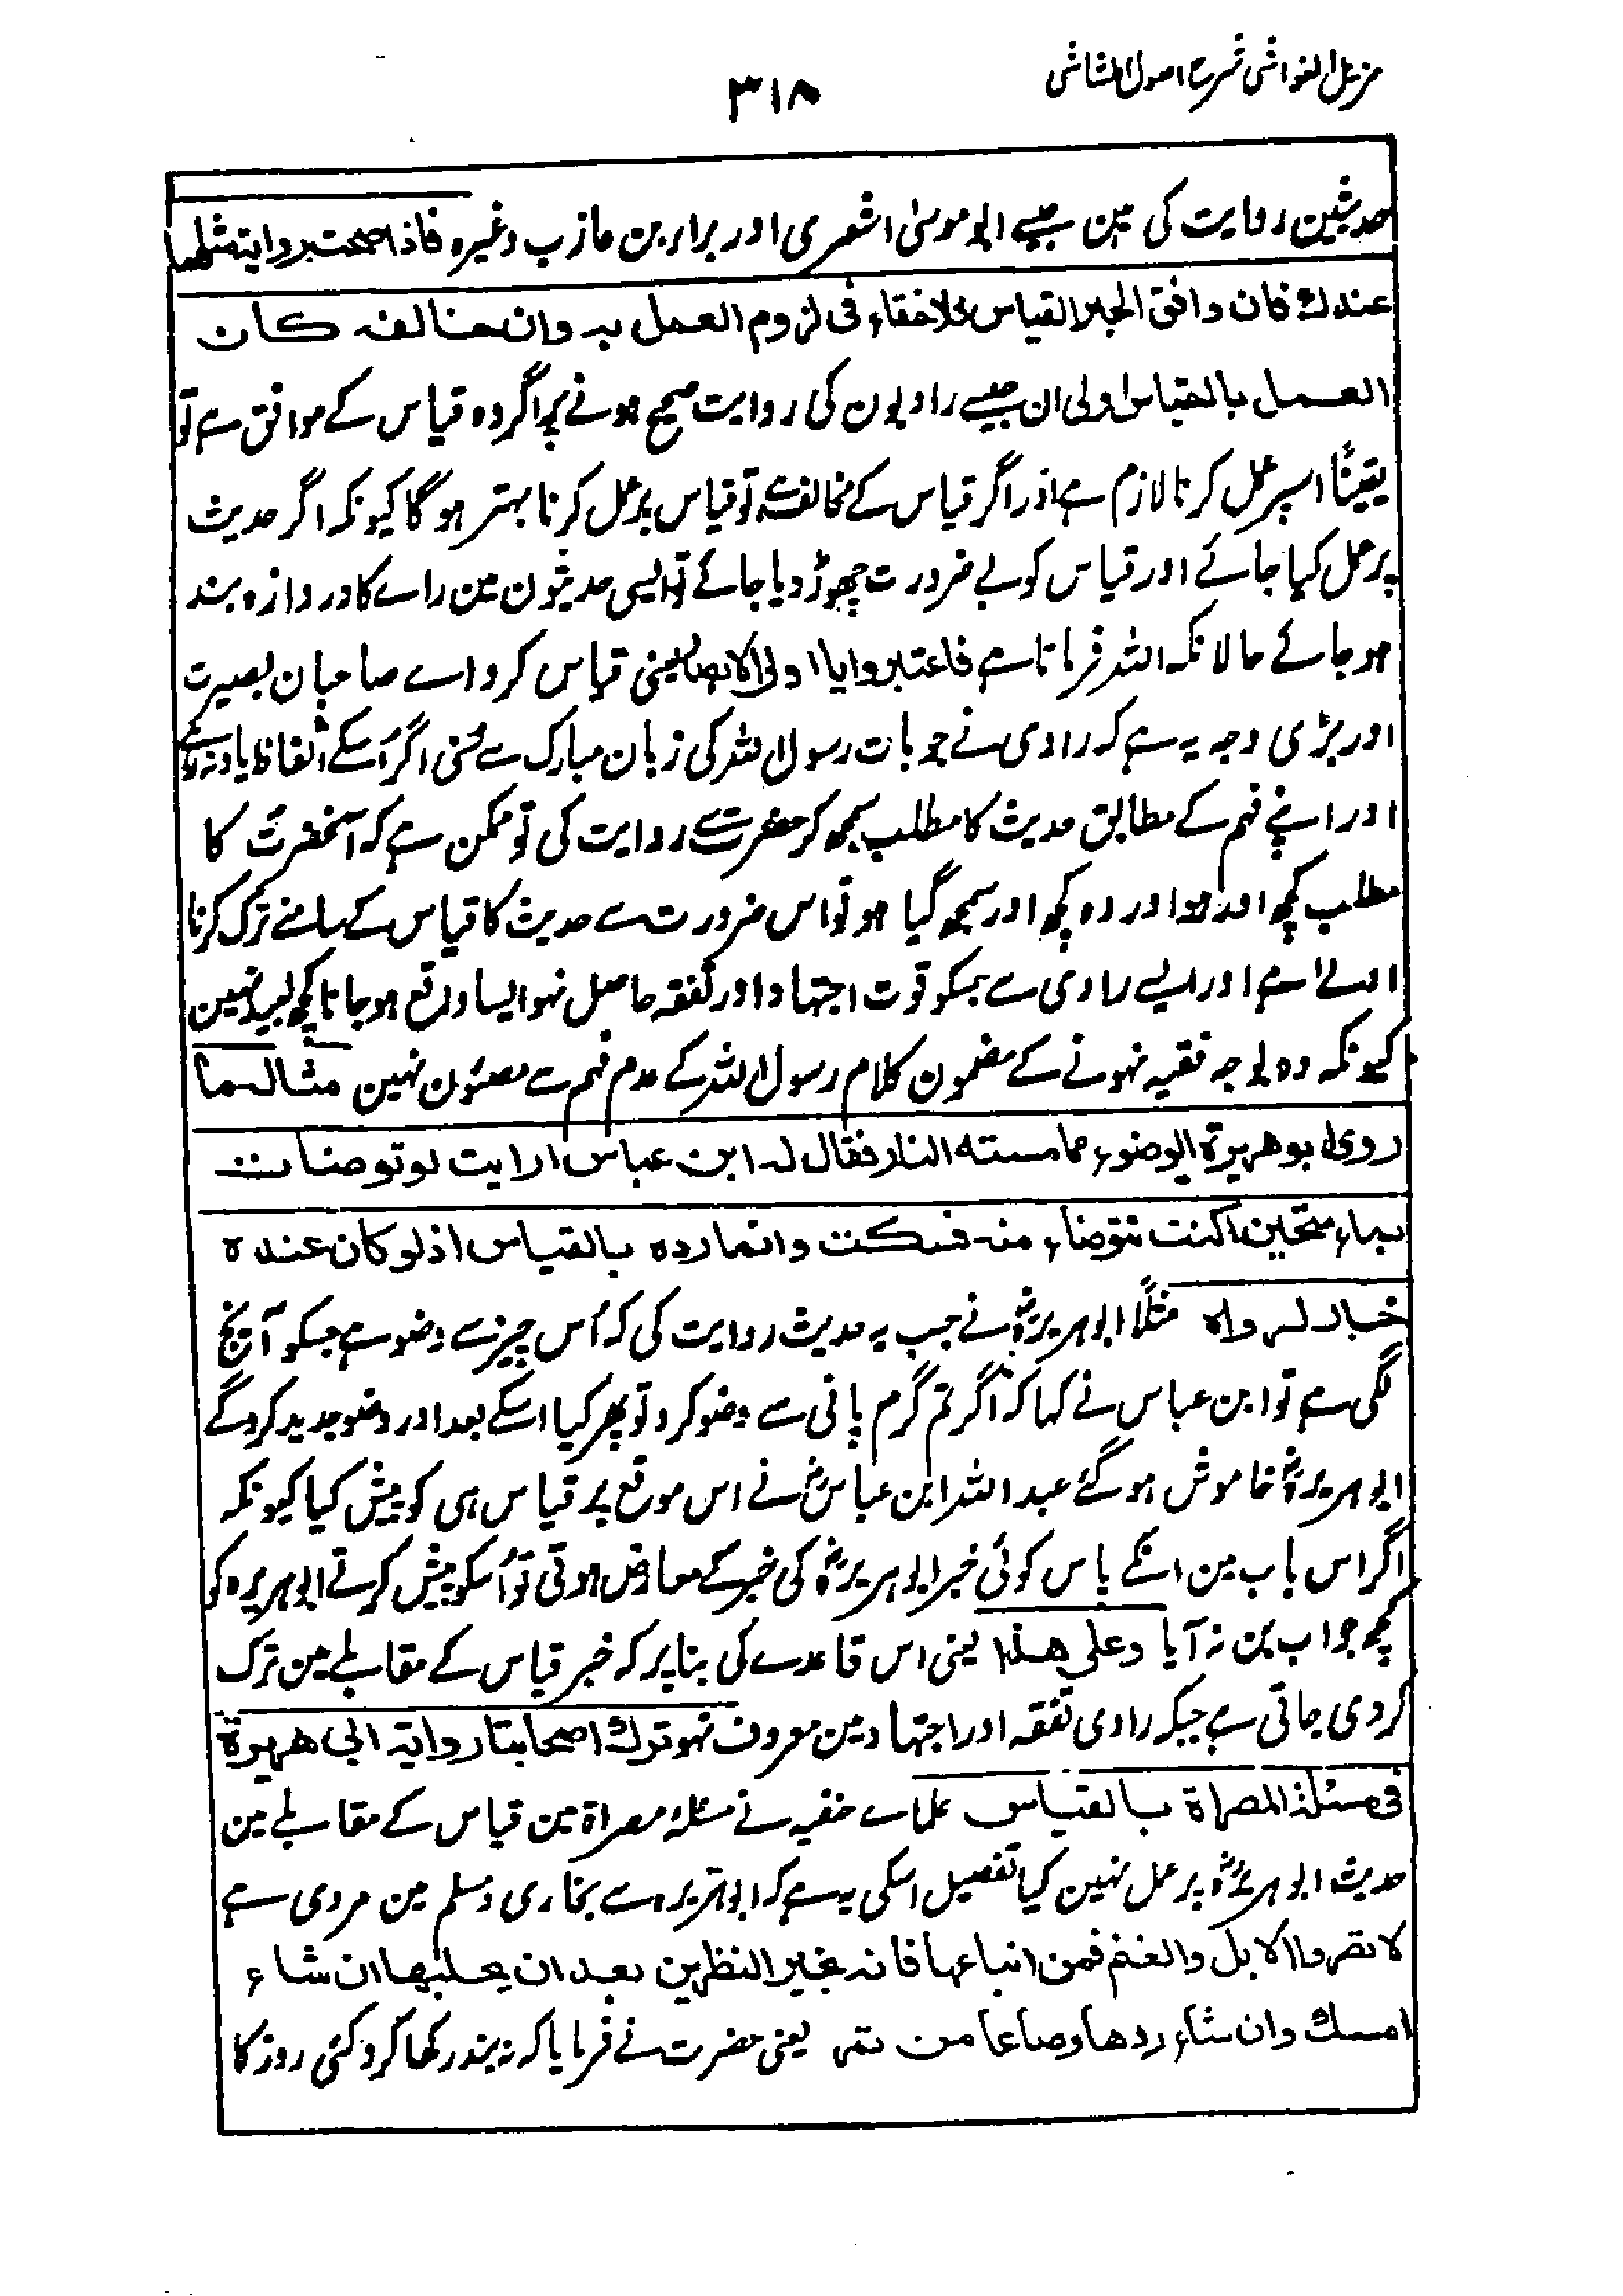 مزیل الغواشی شرح اصول الشاشی
۳۱۸
حدیثین روایت کی ہین جیسے ابو موسیٰ اشعری اور براء بن عازب وغیرہ فاذا صحت روایۃ مثلھما
عندك فان وافق الخبر القیاس فلا خفاء فی لزوم العمل بہ وان خالفہ کان
العمل بالقیاس اولی ان جیسے راویون کی روایت صحیح ہونے پر اگر وہ قیاس کے موافق ہے تو
یقینًا اسپر عمل کرنا لازم ہے اور اگر قیاس کے مخالف ہے تو قیاس پر عمل کرنا بہتر ہو گا کیونکہ اگر حدیث
پر عمل کیا جائے اور قیاس کو بے ضرورت چھوڑ دیا جائے تو ایسی حدیثون مین راے کا دروازہ بند
ہو جائے حالانکہ اللہ فرماتا ہے فاعتبروا یا اولی الابصار یعنی قیاس کرو اے صاحبان بصیرت
اور بڑی وجہ یہ ہے کہ راوی نے جو بات رسول اللہ کی زبان مبارک سے سُنی اگر اُسکے الفاظ یاد نہ رہے
اور اپنے فہم کے مطابق حدیث کا مطلب سمجھ کر حضرت سے روایت کی تو ممکن ہے کہ آنحضرتؐ کا
مطلب کچھ اور ہو اور وہ کچھ اور سمجھ گیا ہو تو اس ضرورت سے حدیث کا قیاس کے سامنے ترک کرنا
اولےٰ ہے اور ایسے راوی سے جسکو قوت اجتہاد اور تفقہ حاصل نہو ایسا واقع ہو جانا کچھ بعید نہین
کیونکہ وہ بوجہ فقیہ نہونے کے مضمون کلام رسول اللہ کے عدم فہم سے مصئون نہین مثالہ ما
روی ابو ھریرۃ الوضوء مما مستہ النار فقال لہ ابن عباس ارایت لو توضأت
بماء سخین اکنت تتوضاء منہ فسکت وانما ردہ بالقیاس اذ لو کان عندہ
خبر لرواہ مثلًا ابو ہریرہؓ نے جب یہ حدیث روایت کی کہ اُس چیز سے وضو ہے جسکو آنچ
لگی ہے تو ابن عباس نے کہا کہ اگر تم گرم پانی سے وضو کرو تو پھر کیا اسکے بعد اور وضو جدید کرو گے
ابو ہریرہؓ خاموش ہو گئے عبد اللہ ابن عباسؓ نے اس موقع پر قیاس ہی کو پیش کیا کیونکہ
اگر اس باب مین انکے پاس کوئی خبر ابو ہریرہؓ کی خبر کے معارض ہوتی تو اُسکو پیش کرتے ابو ہریرہ کو
کچھ جواب بن نہ آیا وعلی ھذا یعنی اس قاعدے کی بنا پر کہ خبر قیاس کے مقابلے مین ترک
کر دی جاتی ہے جبکہ راوی تفقہ اور اجتہاد مین معروف نہو ترك اصحابنا روایۃ ابی ھریرۃ
فی مسئلۃ المصراۃ بالقیاس علماے حنفیہ نے مسئلۂ مصراۃ مین قیاس کے مقابلے مین
حدیث ابو ہریرہؓ پر عمل نہین کیا تفصیل اسکی یہ ہے کہ ابو ہریرہ سے بخاری و مسلم مین مروی ہے
لا تصروا الابل والغنم فمن ابتاعھا فانہ بخیر النظرین بعد ان یحلبھا ان شاء
امسك وان شاء ردھا وصاعا من تمر یعنی حضرت نے فرمایا کہ نہ بند رکھا کرو کئی روز کا